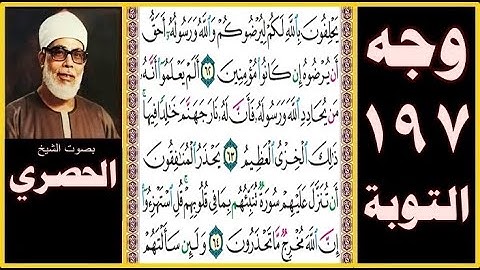 وجه
١٩٧
التوبة
يَحْلِفُونَ بِٱللَّهِ لَكُمْ لِيُرْضُوكُمْ وَٱللَّهُ وَرَسُولُهُۥٓ أَحَقُّ
أَن يُرْضُوهُ إِن كَانُوا۟ مُؤْمِنِينَ ٦٢ أَلَمْ يَعْلَمُوٓا۟ أَنَّهُۥ
مَن يُحَادِدِ ٱللَّهَ وَرَسُولَهُۥ فَأَنَّ لَهُۥ نَارَ جَهَنَّمَ خَٰلِدًا فِيهَا ۚ
ذَٰلِكَ ٱلْخِزْىُ ٱلْعَظِيمُ ٦٣ يَحْذَرُ ٱلْمُنَٰفِقُونَ
أَن تُنَزَّلَ عَلَيْهِمْ سُورَةٌ تُنَبِّئُهُم بِمَا فِى قُلُوبِهِمْ ۚ قُلِ ٱسْتَهْزِءُوٓا۟
إِنَّ ٱللَّهَ مُخْرِجٌ مَّا تَحْذَرُونَ ٦٤ وَلَئِن سَأَلْتَهُمْ
بصوت الشيخ
الحصري